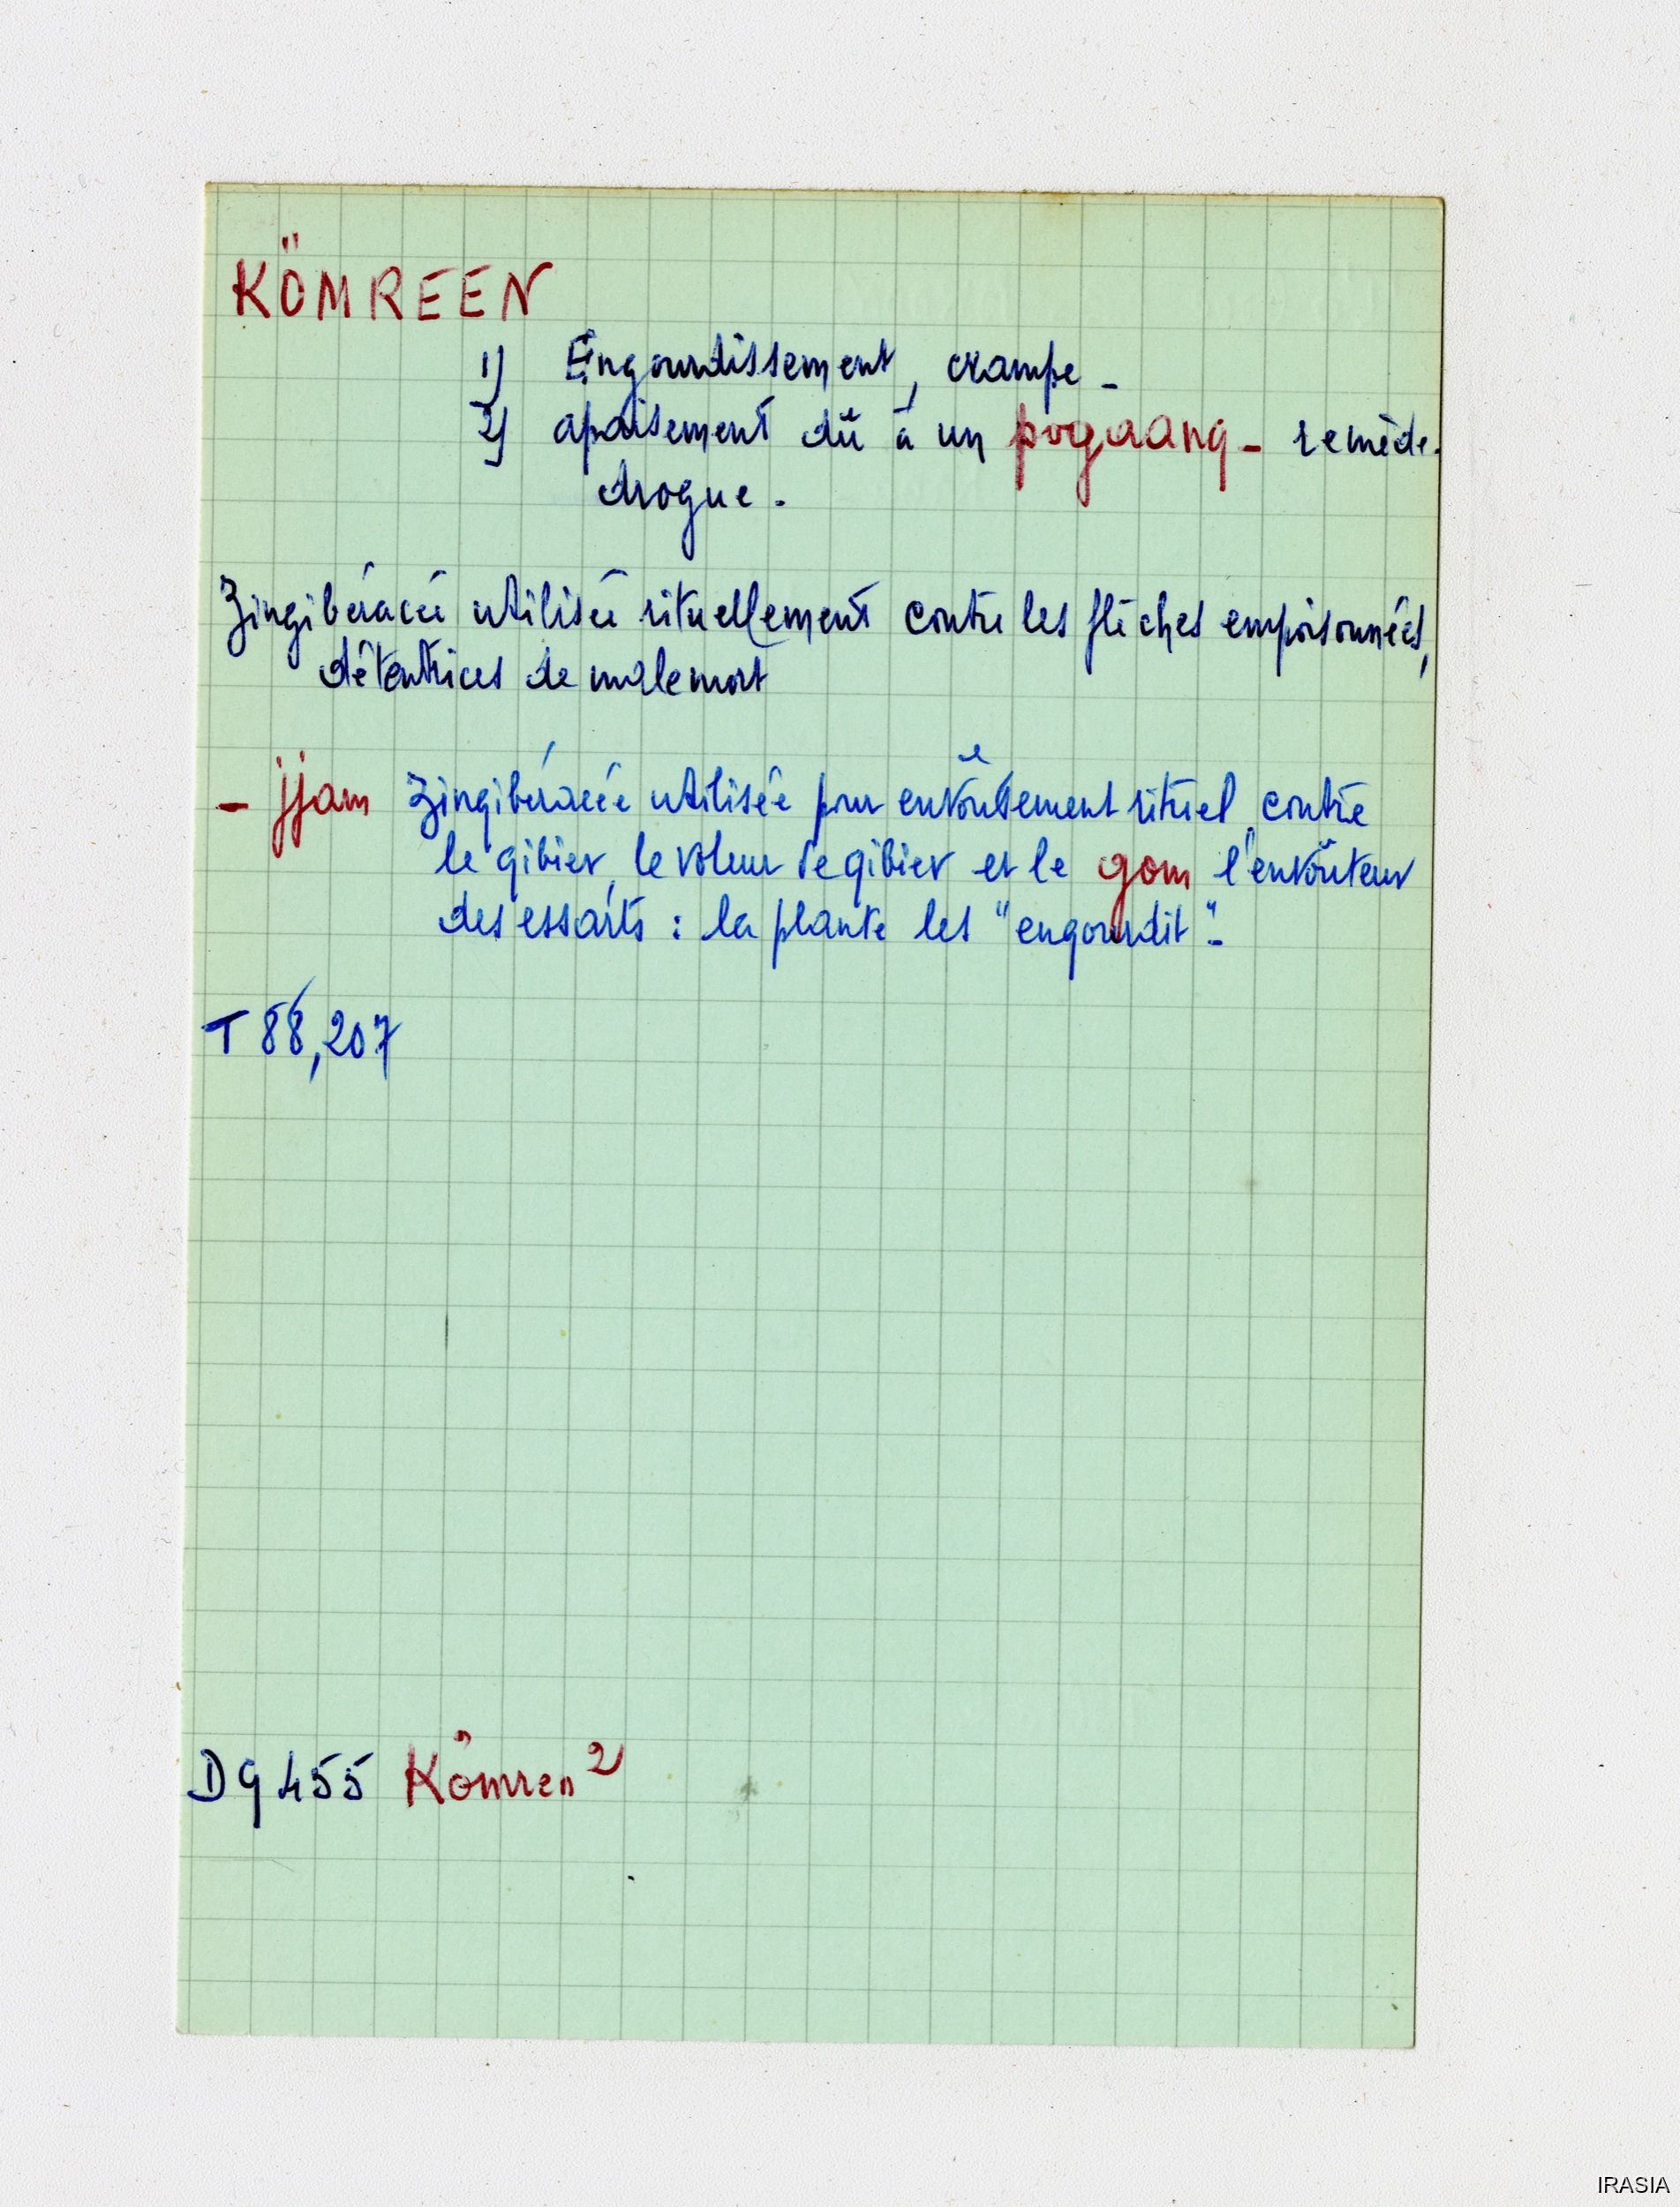 KÖMREEN
1) Engourdissement, crampe -
2) apaisement dû à un pogaang - remède.
drogue.
Zingibéracée utilisée rituellement contre les flèches empoisonnées,
détentrices de malemort
- jjam Zingibéracée utilisée pour envoûtement rituel contre
le gibier, le voleur de gibier et le gom l'envoûteur
des essarts : la plante les "engourdit".
T 88, 207
D 9 455 Kömren 2
IRASIA